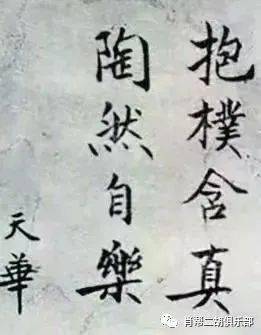 抱樸含真
陶然自樂
天華
肖幫二胡俱乐部